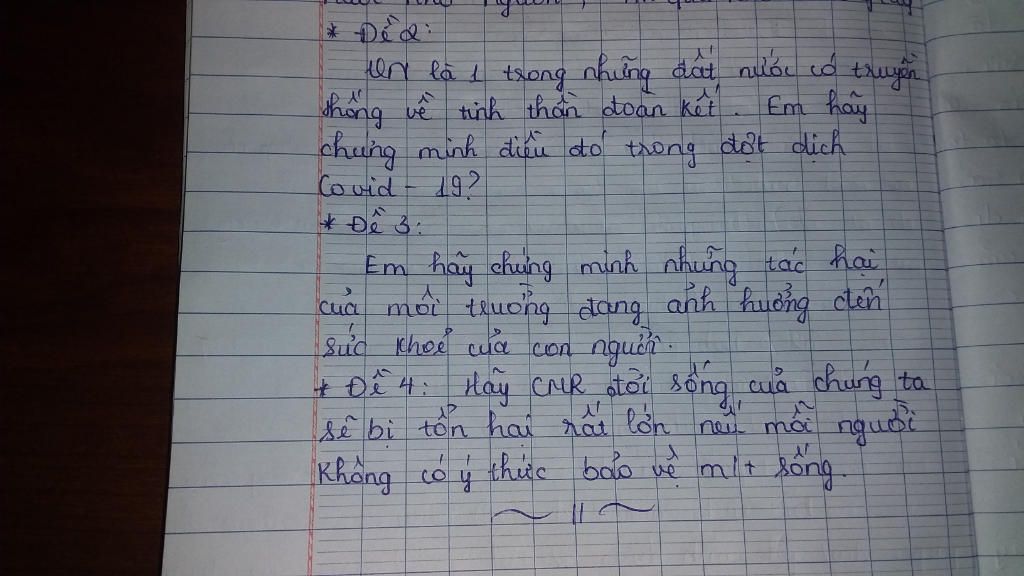 * Đề 2:
VN là 1 trong những đất nước có truyền
thống về tinh thần đoàn kết. Em hãy
chứng minh điều đó trong đợt dịch
Covid - 19?
* Đề 3:
Em hãy chứng minh những tác hại
của môi trường đang ảnh hưởng đến
sức khoẻ của con người.
* Đề 4: Hãy CMR đời sống của chúng ta
sẽ bị tổn hại rất lớn nếu mỗi người
không có ý thức bảo vệ m/t sống.